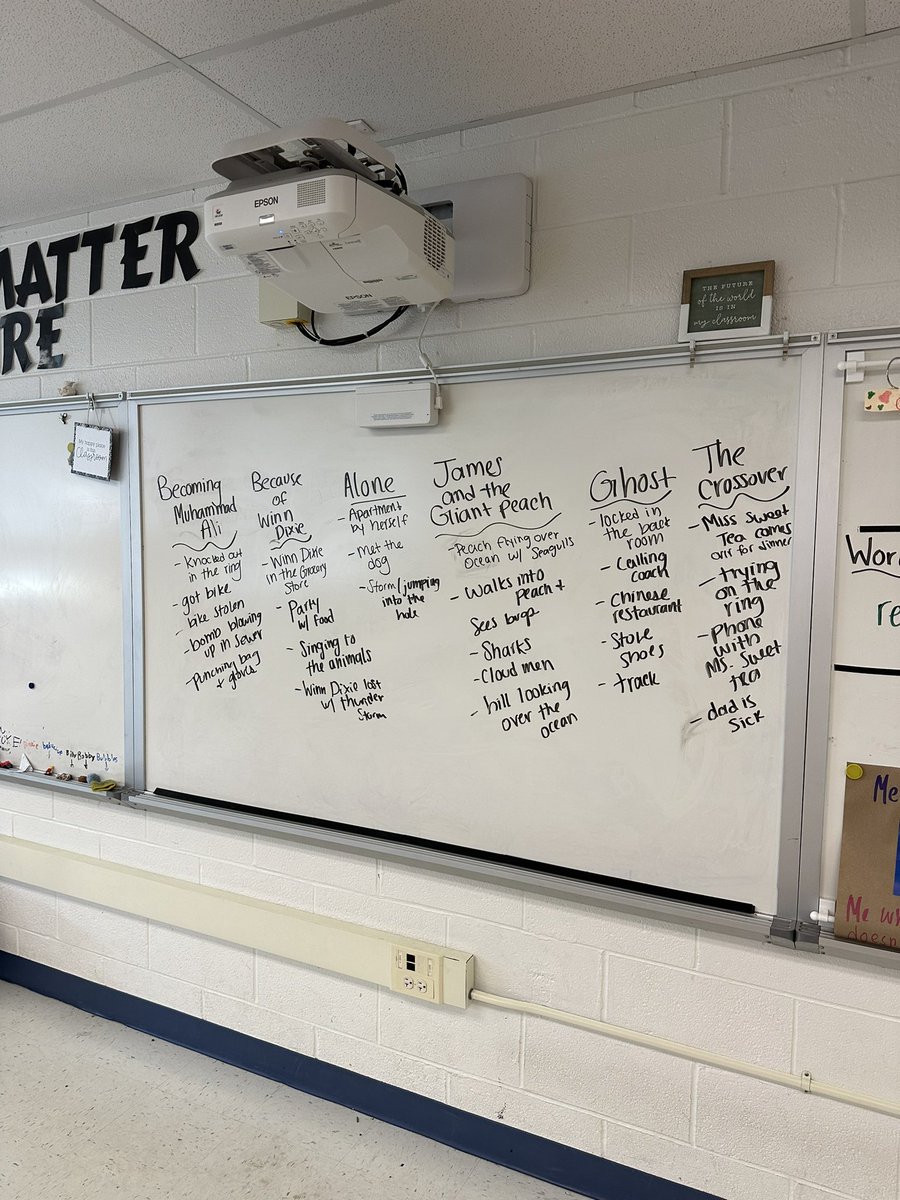 MATTER
RE
EPSON
EPSON
THE FUTURE
of the world
IS IN
my classroom
My happy place
is the
Classroom
Becoming
Muhammad
Ali
- Knocked out
in the ring
- got bike
- bike stolen
- bomb blowing
up in sewer
- Punching bag
+ gloves
Because
of
Winn
Dixie
- Winn Dixie
in the Grocery
Store
- Party
w/ food
- Singing to
the animals
- Winn Dixie lost
w/ thunder
Storm
Alone
- Apartment
by herself
- Met the
dog
- Storm/jumping
into the
hole
James
and the
Giant Peach
- Peach flying over
Ocean w/ Seagulls
- Walks into
peach +
Sees bugs
- Sharks
- Cloud men
- hill looking
over the
ocean
Ghost
- locked in
the back
room
- Calling
coach
- Chinese
restaurant
- Stole
Shoes
- track
The
Crossover
- Miss Sweet
Tea comes
over for dinner
- trying
on the
ring
- phone
with
Ms. Sweet
tea
- dad is
Sick
Wor
re
Me
Me w
doesn
Billy Bobby Bubbles